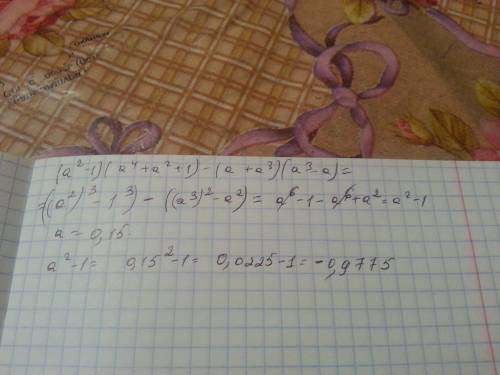 (a²-1)(a⁴+a²+1)-(a+a³)(a³-a)=
=((a²)³-1³)-((a³)²-a²)=a⁶-1-a⁶+a²=a²-1
a=0,15.
a²-1= 0,15²-1= 0,0225-1=-0,9775